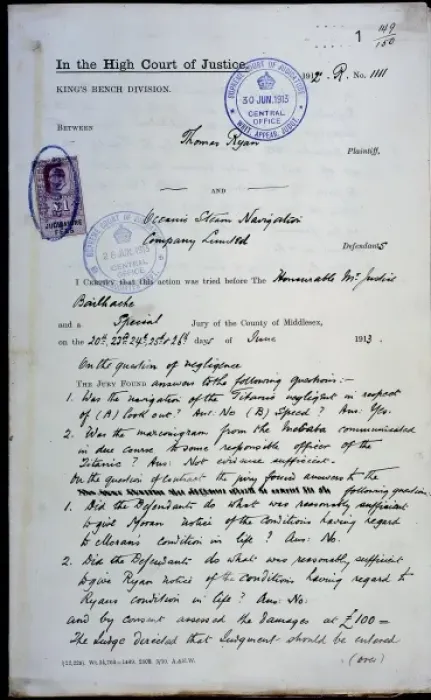 1 149
150
In the High Court of Justice.
1912. R. No. 1111
KING'S BENCH DIVISION.
SUPREME COURT OF JUDICATURE
30 JUN. 1913
CENTRAL
OFFICE
BETWEEN
Thomas Ryan
Plaintiff,
AND
£1
Oceanic Steam Navigation
Company Limited
Defendants
SUPREME COURT OF JUDICATURE
CENTRAL
OFFICE
I CERTIFY that this action was tried before The Honourable Mr Justice
Bailhache
and a Special Jury of the County of Middlesex,
on the 20th, 23rd 24th, 25th & 26th days of June 1913.
On the question of negligence
THE JURY FOUND answers to the following questions:-
1. Was the navigation of the Titanic negligent in respect
of (A) look out? Ans: No (B) Speed? Ans: Yes.
2. Was the marconigram from the Mesaba communicated
in due course to some responsible officer of the
Titanic? Ans: Not evidence sufficient.
On the question of contract the jury found answers to the
following question
1. Did the Defendants do what was reasonably sufficient
to give Moran notice of the conditions having regard
to Moran's condition in life? Ans: No.
2. Did the Defendants do what was reasonably sufficient
to give Ryan notice of the conditions having regard to
Ryans condition in life? Ans: No.
and by consent assessed the damages at £100=
The Judge directed that Judgment should be entered
(over)